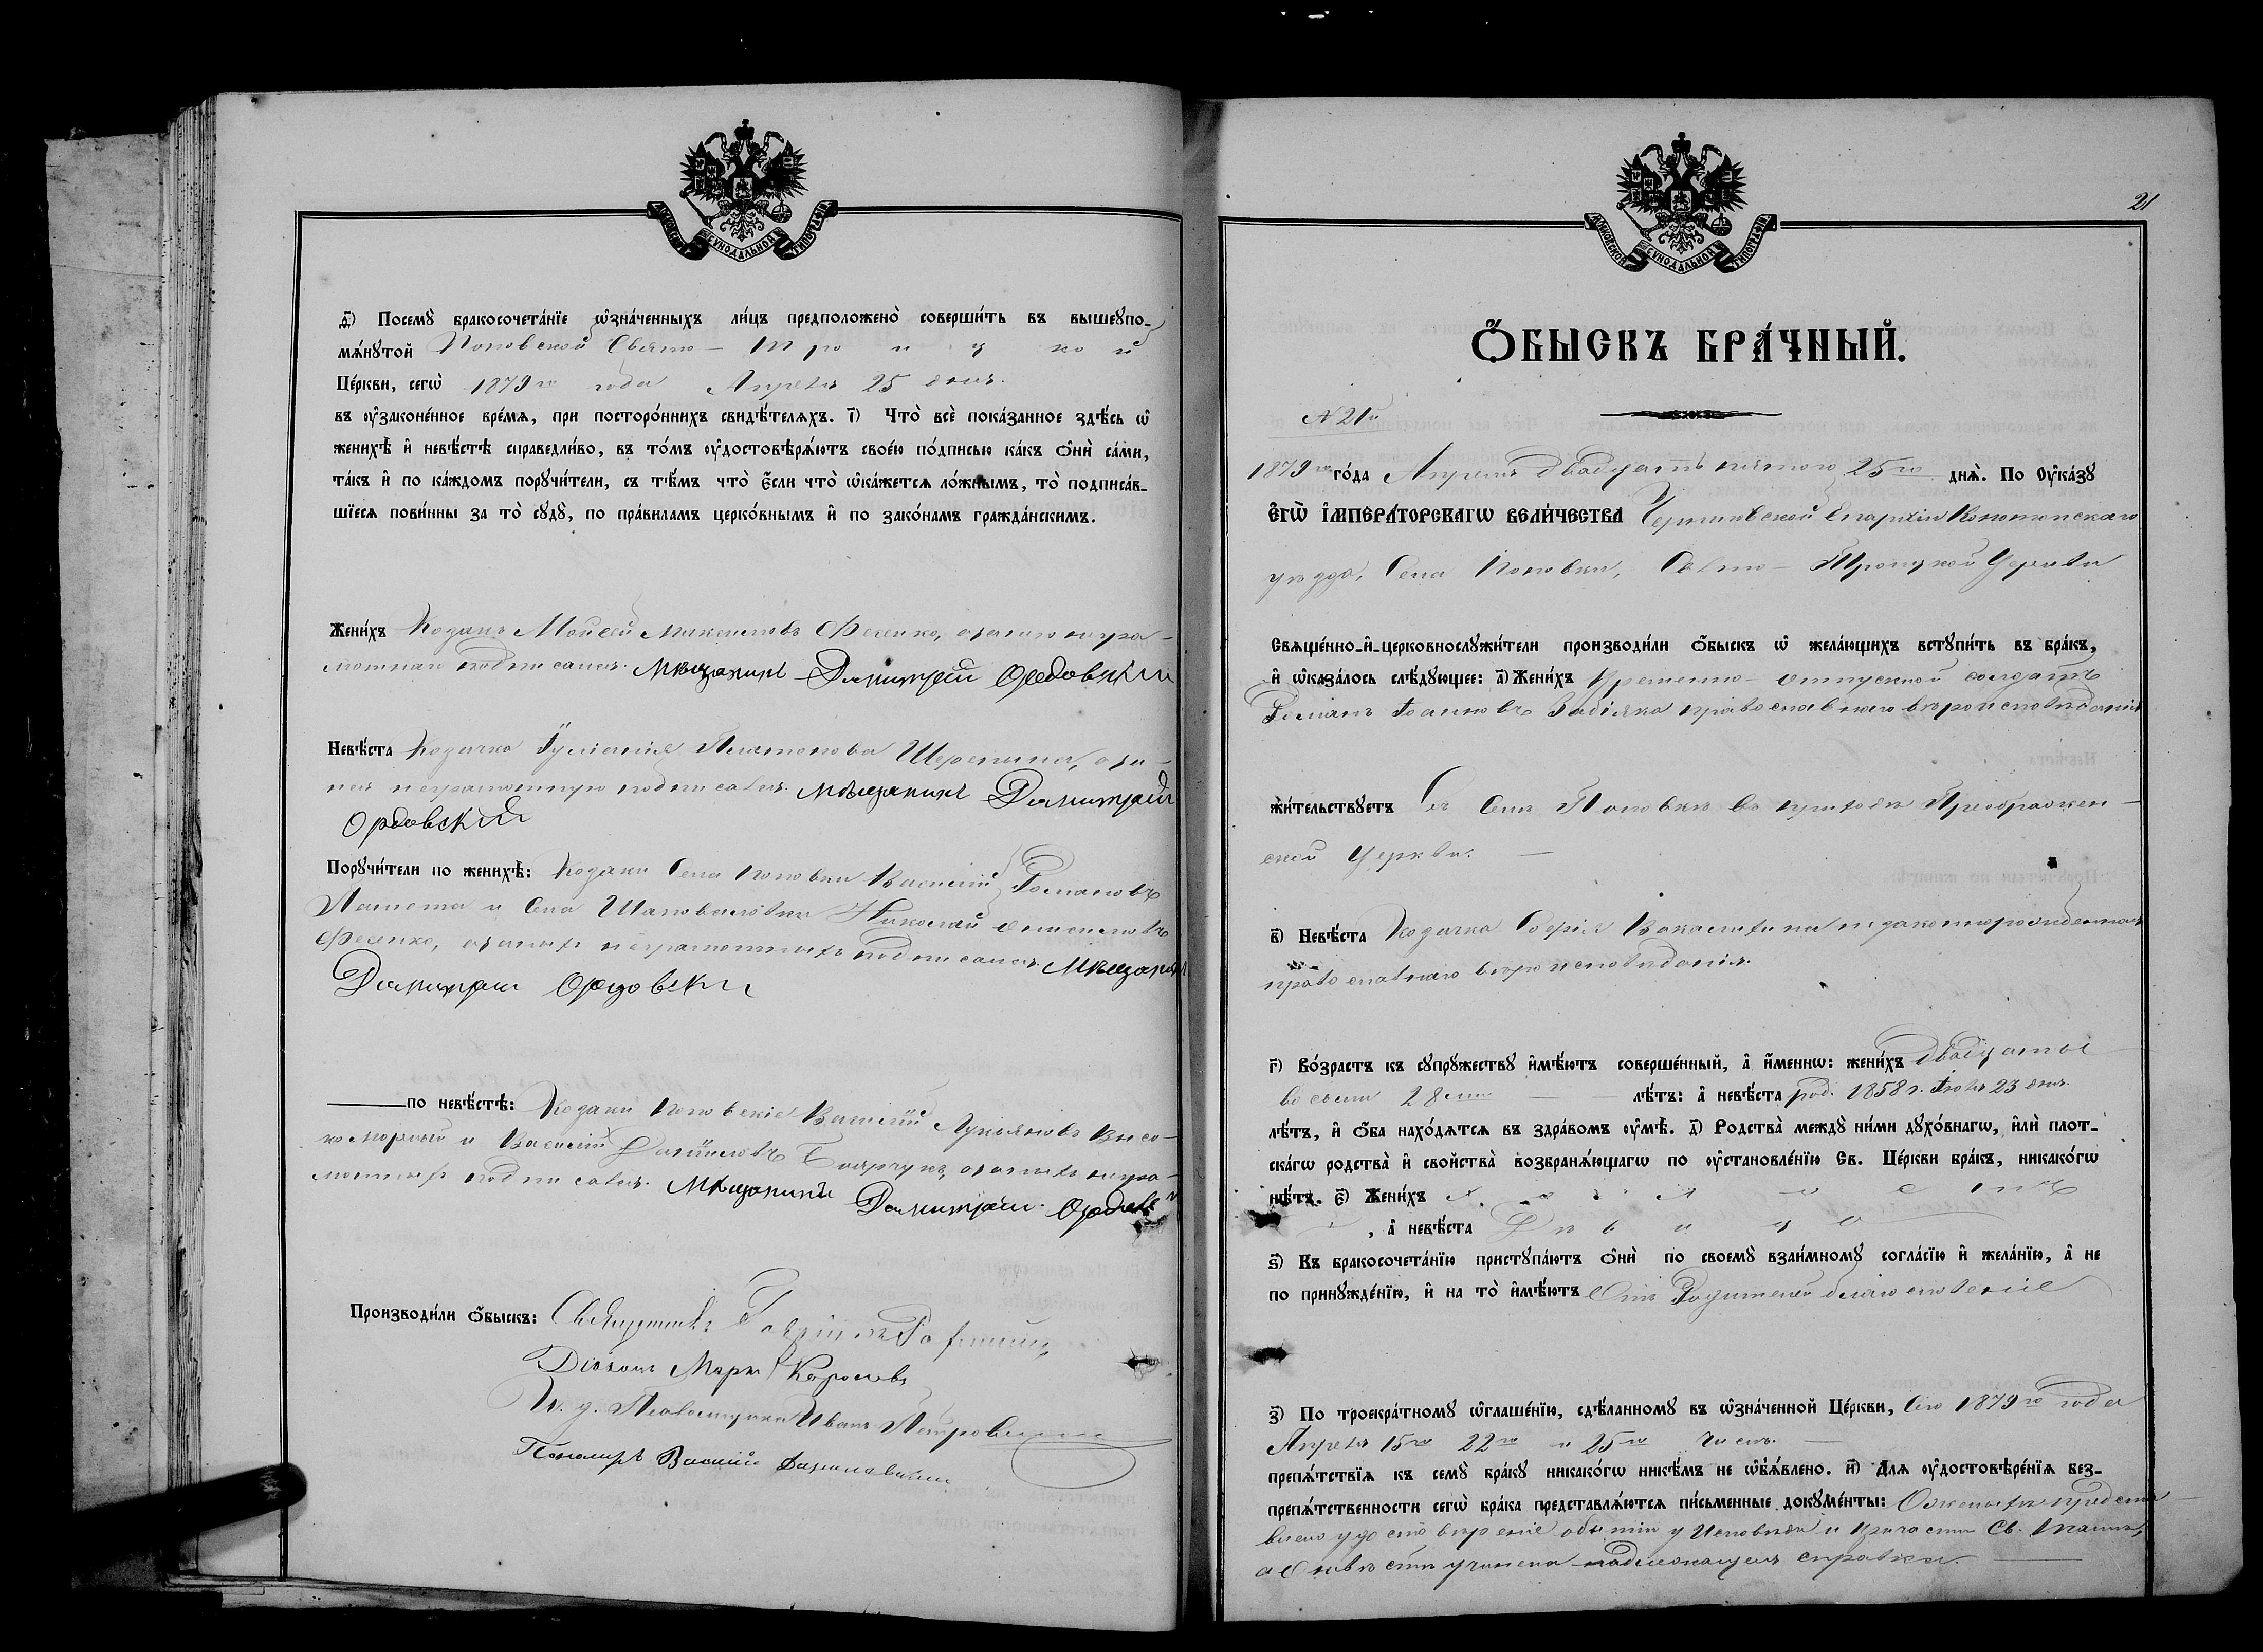 МОСКОВСКОЙ СѴНОДАЛЬНОЙ ТИПОГРАФІИ
д҃) Посемꙋ бракосочета́нїе ѡ҆зна́ченныхъ ли́цъ предположено̀ соверши́ть въ вышеꙋпо-
мѧ́нꙋтой Поповской Свято - Троицкой
Це́ркви, сегѡ̀ 1879го года Апреля 25 дня.
въ ᲂу҆зако́ненное вре́мѧ, при посторо́ннихъ свидѣ́телѧхъ. і҃) Что̀ всѐ пока́занное здѣ́сь ѡ҆
женихѣ̀ и҆ невѣ́стѣ справедли́во, въ то́мъ ᲂу҆достовѣрѧ́ютъ свое́ю по́дписью ка́къ ѻ҆нѝ са́ми,
та́къ и҆ по ка́ждомъ порꙋчи́тели, съ тѣ́мъ что̀ є҆́сли что̀ ѡ҆ка́жетсѧ ло́жнымъ, то̀ подписа́в-
шїесѧ пови́нны за то̀ сꙋдꙋ̀, по пра́виламъ церко́внымъ и҆ по зако́намъ гражда́нскимъ.
Жени́хъ Козакъ Моисей Максимовъ Фесенко, а за него неgра-
мотнаго подписался. Мѣщанинъ Димитрій Ордовскій
Невѣ́ста Козачка Іуліанія Платонова Шерепина, а за
нея неграмотную подписался. Мѣщанинъ Димитрій
Ордовскій
Порꙋчи́тели по женихѣ̀: Козаки Села Поповки Василій Романовъ
и Села Шаповаловки Николай
Фесенко, а за нихъ неграмотныхъ подписался Мѣщанинъ
Димитрій Ордовскій
по невѣ́стѣ: Козаки Поповскіе Василій Лукьяновъ Висо-
коморный и Василій Даніиловъ Боярчукъ, а за нихъ негра-
мотныхъ подписался. Мѣщанинъ Димитрій Ордовскій
Производи́ли ѻ҆́быскъ: Священникъ Гавріилъ
Діаконъ Маркъ Королевъ
И. д. Псаломщика Иванъ Петровскій
Пономарь Василій
21
МОСКОВСКОЙ СѴНОДАЛЬНОЙ ТИПОГРАФІИ
Ѻ҆́БЫСКЪ БРА́ЧНЫЙ.
N 21й
1879го го́да Апреля двадцать пятого 25го днѧ̀. По Оу҆ка́зꙋ
Є҆ГѠ̀ І҆МПЕРА́ТОРСКАГѠ ВЕЛИ́ЧЕСТВА Черниговской Епархіи Конотопскаго
уѣзда, Села Поповки, Свято - Троицкой Церкви
Свѧще́нно-и҆-церковнослꙋжи́тели производи́ли ѻ҆́быскъ ѡ҆ жела́ющихъ встꙋпи́ть въ бра́къ,
и҆ ѡ҆каза́лось слѣ́дꙋющее: а҃) Жени́хъ Временно - отпускной солдатъ
Романъ Іоанновъ Забіяка православнаго вѣроисповѣданія
жи́тельствꙋетъ Въ Селѣ Поповкѣ въ приходѣ Преображен-
ской Церкви. —
в҃) Невѣ́ста Козачка Софія незаконнорожденная
православнаго вѣроисповѣданія.
г҃) Во́зрастъ къ сꙋпрꙋ́жествꙋ и҆мѣ́ютъ соверше́нный, а҆ и҆́меннѡ: жени́хъ двадцать
восьми 28ми — лѣ́тъ: а҆ невѣ́ста род. 1858 г. Іюля 23 дня.
лѣ́тъ, и҆ ѻ҆́ба нахо́дѧтсѧ въ здра́вомъ ᲂу҆мѣ̀. д҃) Родства̀ междꙋ̀ ни́ми дꙋхо́внагѡ, и҆лѝ плот-
ска́гѡ родства̀ и҆ сво́йства̀ возбранѧ́ющагѡ по ᲂу҆становле́нїю Св. Це́ркви бра́къ, никако́гѡ
нѣ́тъ. є҃) Жени́хъ Холостъ
, а҆ невѣ́ста Дѣвица
ѕ҃) Къ бракосочета́нїю пристꙋпа́ютъ ѻ҆нѝ по своемꙋ̀ взаи́мномꙋ согла́сїю и҆ жела́нїю, а҆ не
по принꙋжде́нїю, и҆ на то̀ и҆мѣ́ютъ Отъ Родителей благословеніе
з҃) По троекра́тномꙋ ѡ҆глаше́нїю, сдѣ́ланномꙋ въ ѡ҆зна́ченной Це́ркви, Сего 1879го года
Апреля 15го 22го и 25го числъ. —
препѧ́тствїѧ къ семꙋ̀ бра́кꙋ никако́гѡ никѣ́мъ не ѡ҆б̾ѧ́влено. и҃) Длѧ ᲂу҆достовѣре́нїѧ без-
препѧ́тственности сегѡ̀ бра́ка представлѧ́ютсѧ пи́сьменные докꙋме́нты: О женихѣ предста-
влено удостовѣреніе о бытіи у Исповѣди и Причастія Св. Таинъ,
а о невѣстѣ учинена надлежащая справка. —